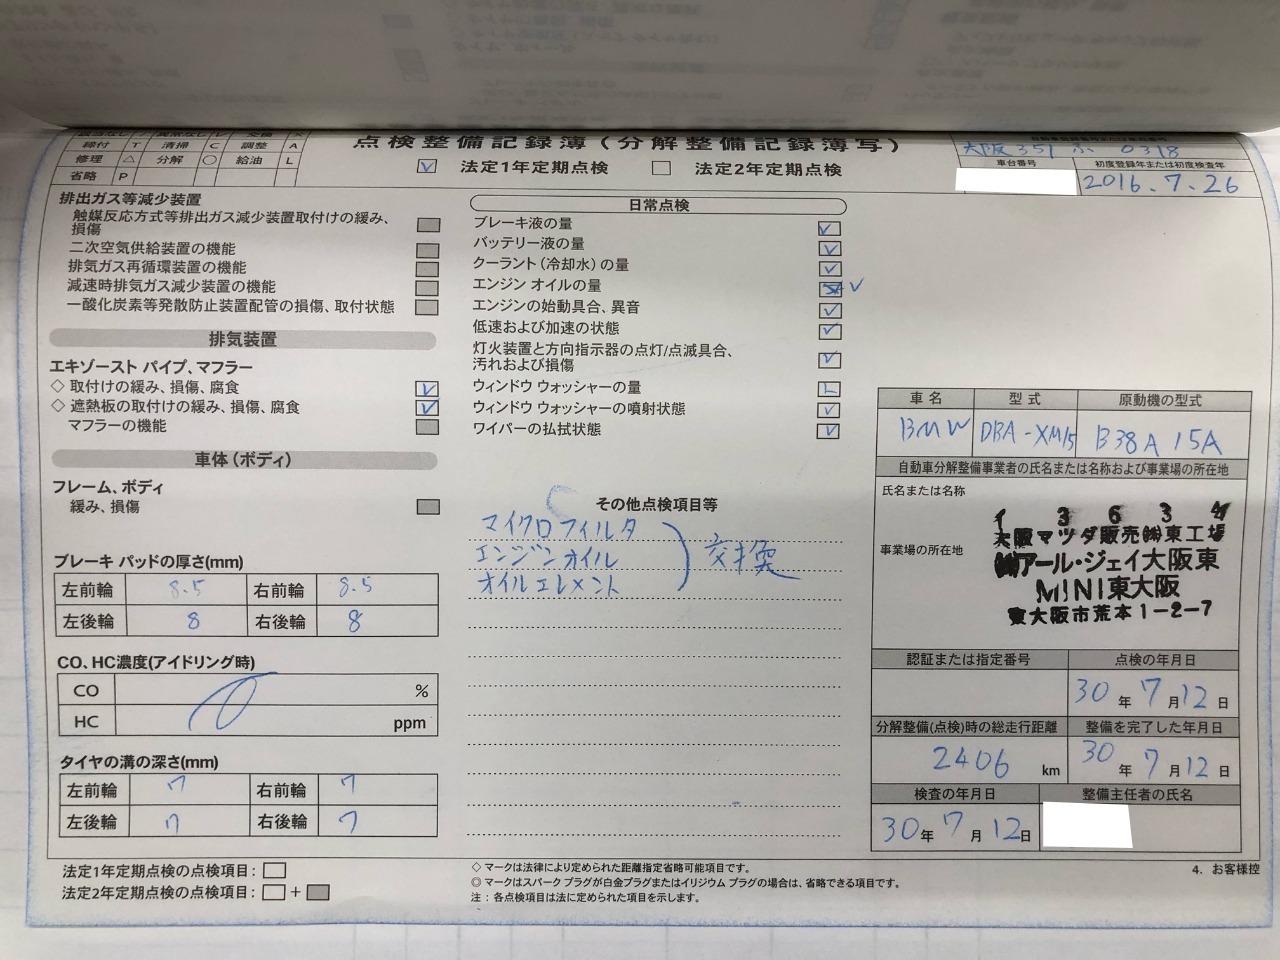 締付 T 清掃 C 調整 A
修理 △ 分解 ○ 給油 L
省略 P
点検整備記録簿(分解整備記録簿写)
✓ 法定1年定期点検 □ 法定2年定期点検
大阪 351 ふ 0318
車台番号 初度登録年または初度検査年
2016.7.26
排出ガス等減少装置
触媒反応方式等排出ガス減少装置取付けの緩み、
損傷
二次空気供給装置の機能
排気ガス再循環装置の機能
減速時排気ガス減少装置の機能
一酸化炭素等発散防止装置配管の損傷、取付状態
排気装置
エキゾースト パイプ、マフラー
◇ 取付けの緩み、損傷、腐食 ✓
◇ 遮熱板の取付けの緩み、損傷、腐食 ✓
マフラーの機能
車体(ボディ)
フレーム、ボディ
緩み、損傷
ブレーキ パッドの厚さ(mm)
左前輪 8.5 右前輪 8.5
左後輪 8 右後輪 8
CO、HC濃度(アイドリング時)
CO %
HC ppm
タイヤの溝の深さ(mm)
左前輪 7 右前輪 7
左後輪 7 右後輪 7
法定1年定期点検の点検項目: □
法定2年定期点検の点検項目: □+
日常点検
ブレーキ液の量 ✓
バッテリー液の量 ✓
クーラント(冷却水)の量 ✓
エンジン オイルの量 ✓
エンジンの始動具合、異音 ✓
低速および加速の状態 ✓
灯火装置と方向指示器の点灯/点滅具合、
汚れおよび損傷 ✓
ウィンドウ ウォッシャーの量 L
ウィンドウ ウォッシャーの噴射状態 ✓
ワイパーの払拭状態 ✓
その他点検項目等
マイクロフィルタ
エンジンオイル ) 交換
オイルエレメント
◇ マークは法律により定められた距離指定省略可能項目です。
◎ マークはスパーク プラグが白金プラグまたはイリジウム プラグの場合は、省略できる項目です。
注:各点検項目は法に定められた項目を示します。
車名 型式 原動機の型式
BMW DBA-XM15 B38A 15A
自動車分解整備事業者の氏名または名称および事業場の所在地
氏名または名称
事業場の所在地
イ 3 6 3 4
大阪マツダ販売㈱東工場
㈱アール・ジェイ大阪東
MINI東大阪
東大阪市荒本1-2-7
認証または指定番号 点検の年月日
30年 7月12日
分解整備(点検)時の総走行距離 整備を完了した年月日
2406 km 30年 7月12日
検査の年月日 整備主任者の氏名
30年 7月 12日
4. お客様控